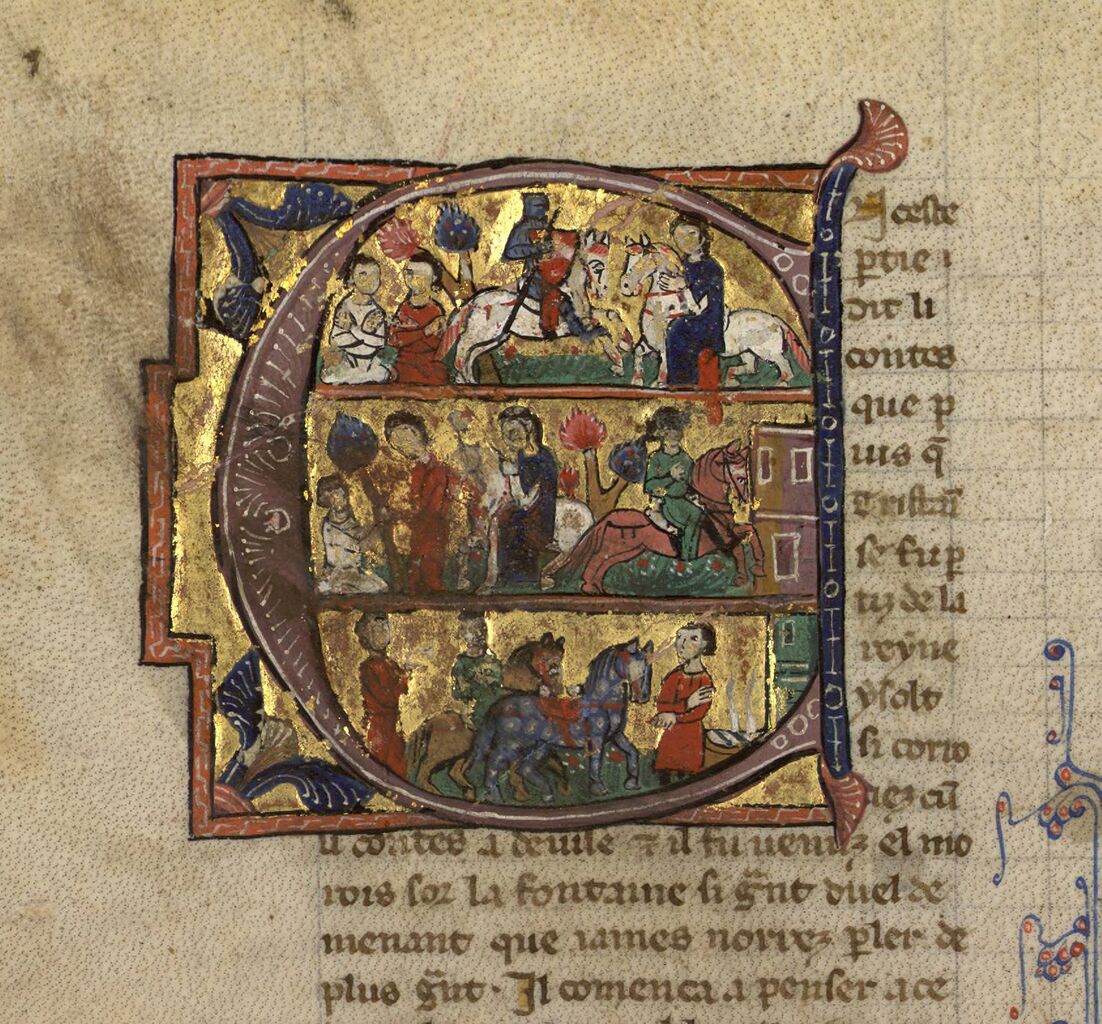 E
N ceste
ptie
dit li
contes
que p
uis q̃
Tristã
se fu p
tiz de la
reyne
ysolt
si coroı
iez cũ
li contes a deuise ⁊ il fu uenuz el mo
rois sor la fontaine si gñt duel de
menant que iames norrez pler de
plus gñt · Il comenca a penser a ce